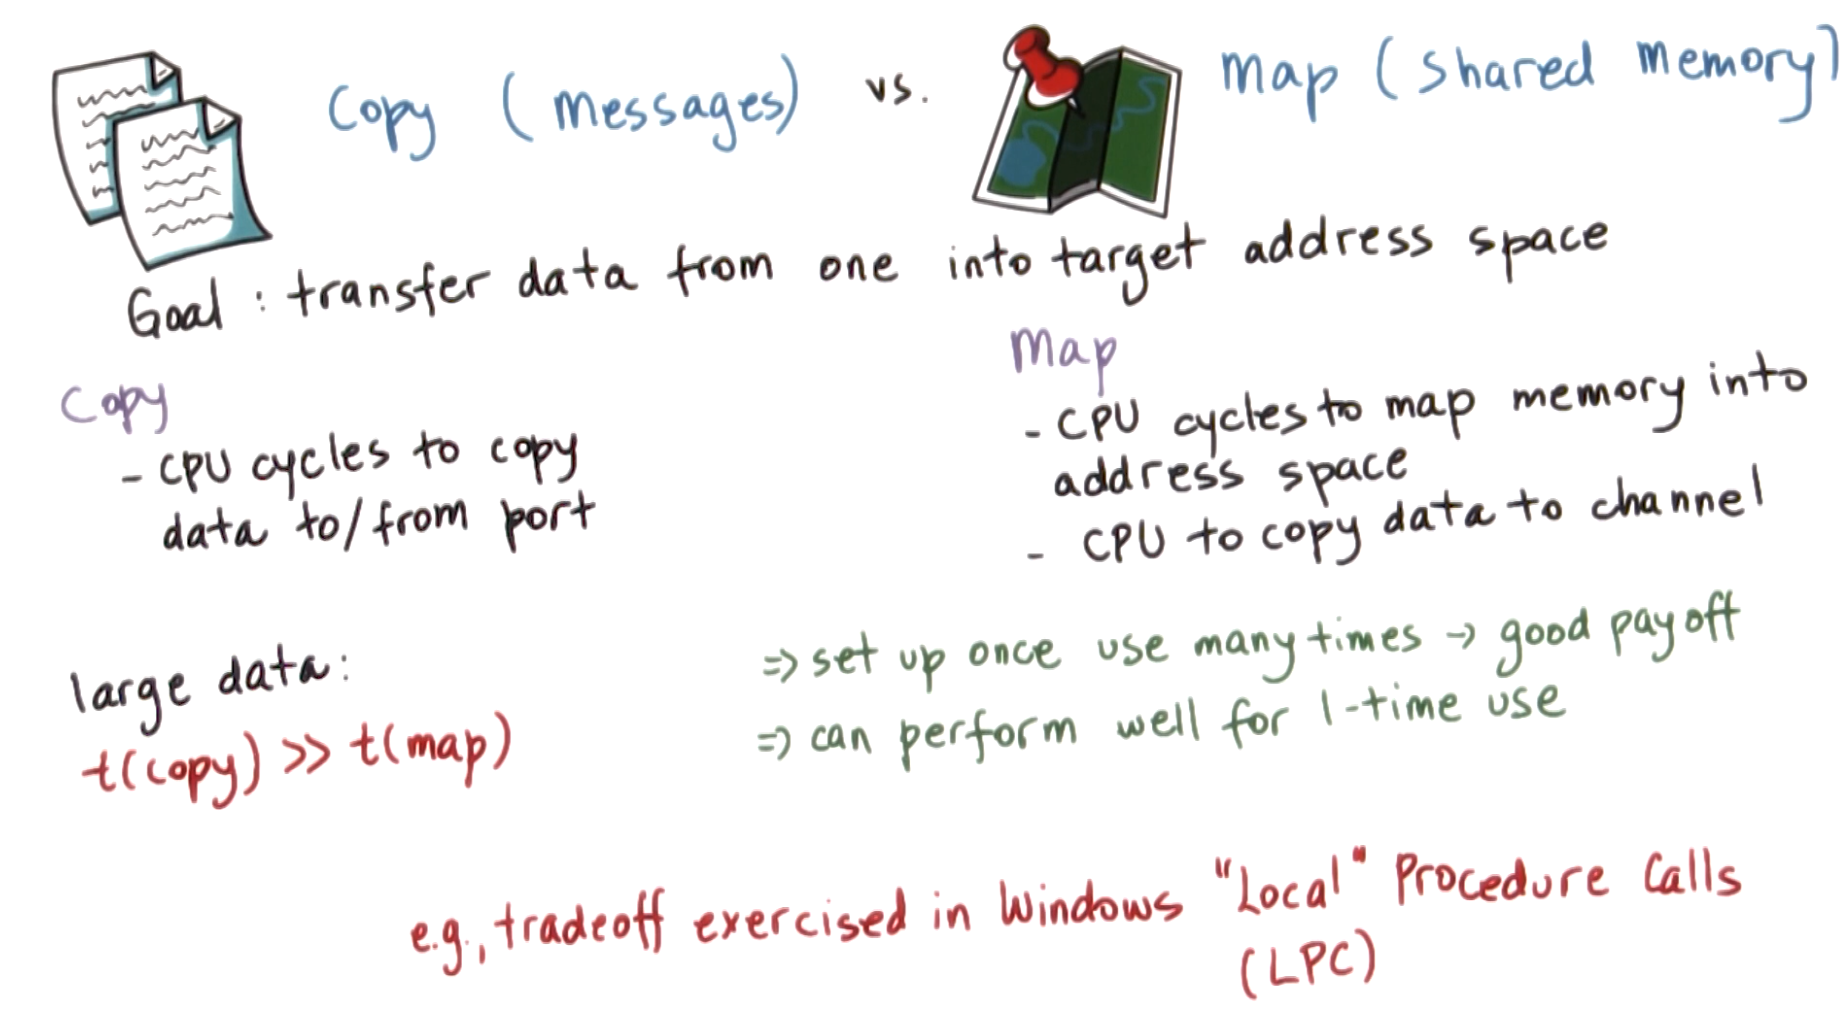 Copy (messages) vs. Map (shared memory)
Goal: transfer data from one into target address space
Copy
- CPU cycles to copy
data to/from port
Map
- CPU cycles to map memory into
address space
- CPU to copy data to channel
large data:
t(copy) >> t(map)
=> set up once use many times → good payoff
=> can perform well for 1-time use
e.g., tradeoff exercised in Windows "Local" Procedure Calls
(LPC)